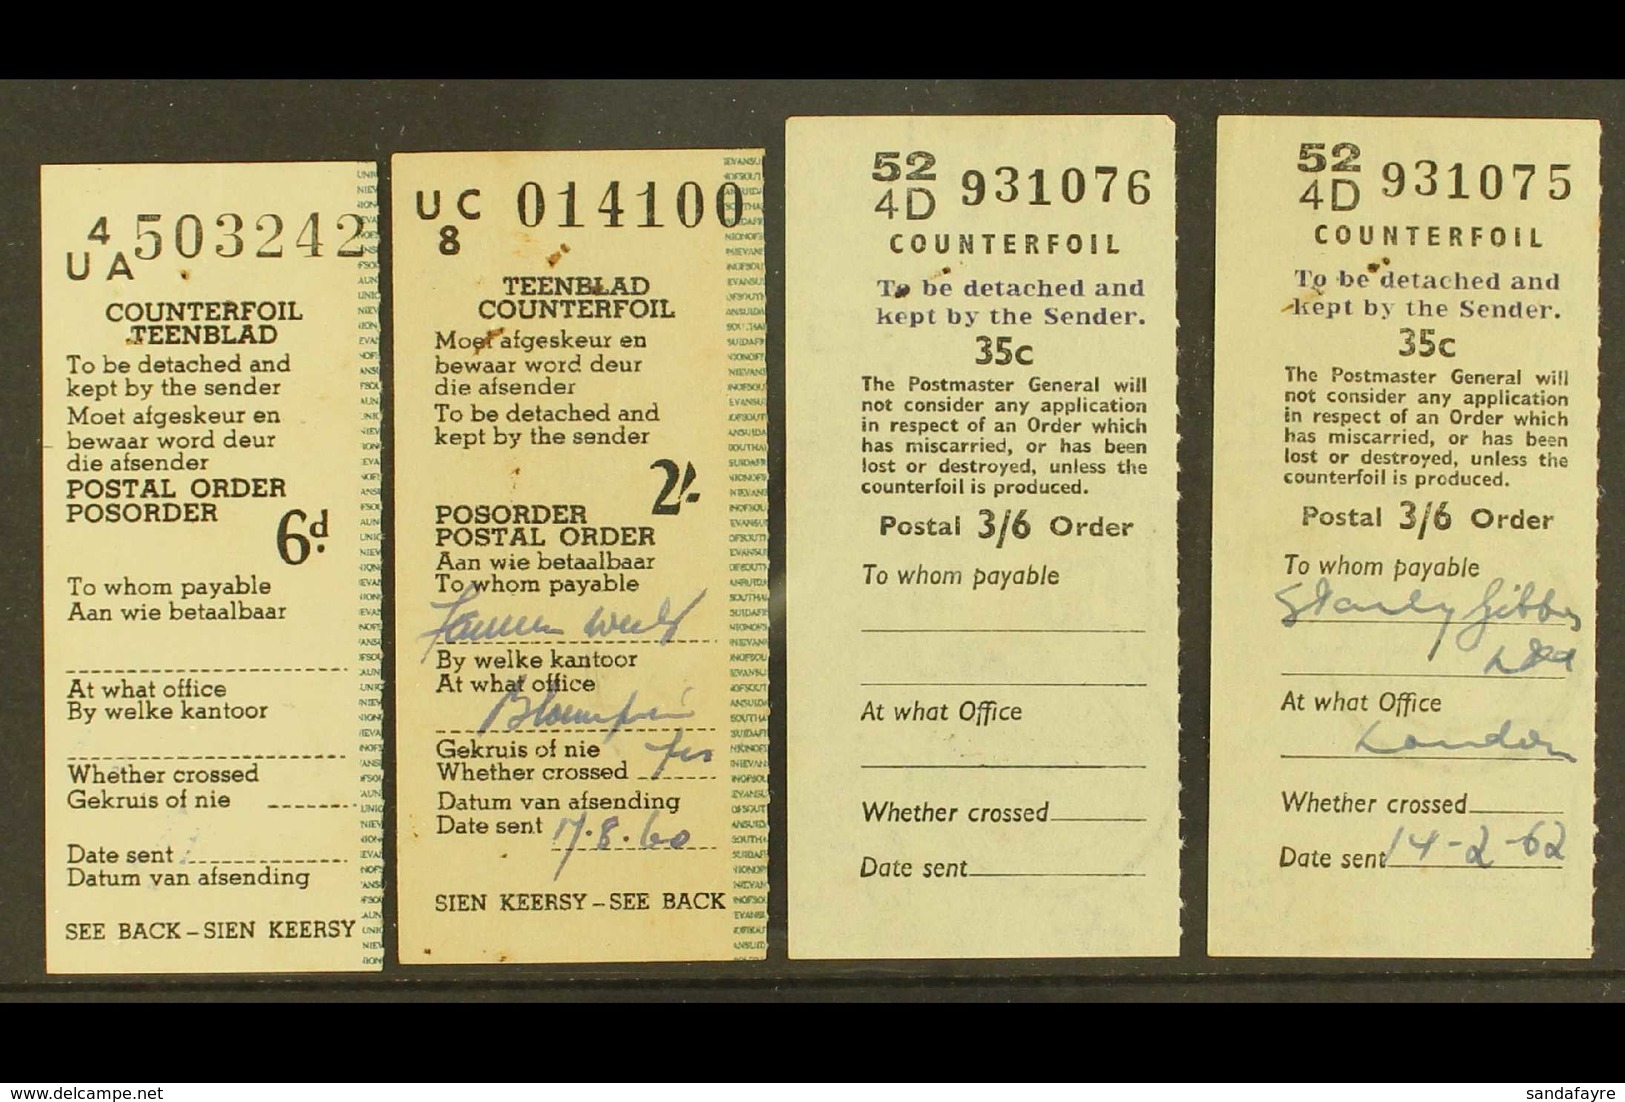 4
U A 503242
COUNTERFOIL
TEENBLAD
To be detached and
kept by the sender
Moet afgeskeur en
bewaar word deur
die afsender
POSTAL ORDER
POSORDER
6d.
To whom payable
Aan wie betaalbaar
At what office
By welke kantoor
Whether crossed
Gekruis of nie
Date sent
Datum van afsending
SEE BACK – SIEN KEERSY
U C 014100
8
TEENBLAD
COUNTERFOIL
Moet afgeskeur en
bewaar word deur
die afsender
To be detached and
kept by the sender
2/-
POSORDER
POSTAL ORDER
Aan wie betaalbaar
To whom payable
By welke kantoor
At what office
Gekruis of nie
Whether crossed yes
Datum van afsending
Date sent 17.8.60
SIEN KEERSY – SEE BACK
52
4D 931076
COUNTERFOIL
To be detached and
kept by the Sender.
35c
The Postmaster General will
not consider any application
in respect of an Order which
has miscarried, or has been
lost or destroyed, unless the
counterfoil is produced.
Postal 3/6 Order
To whom payable
At what Office
Whether crossed
Date sent
52
4D 931075
COUNTERFOIL
To be detached and
kept by the Sender.
35c
The Postmaster General will
not consider any application
in respect of an Order which
has miscarried, or has been
lost or destroyed, unless the
counterfoil is produced.
Postal 3/6 Order
To whom payable
Stanley Gibbons
Ltd
At what Office
London
Whether crossed
Date sent 14-2-62
delcampe.net
sandafayre